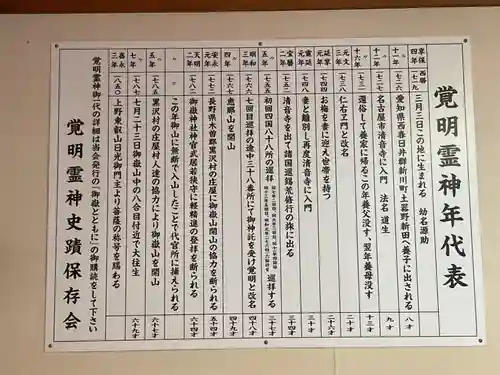 覚明霊神年代表
享保四年 西暦一七一九 三月三日この地に生まれる 幼名源助
十一年 一七二六 愛知県西春日井郡新川町土器野新田へ養子に出される 八才
十二年 一七二七 名古屋市清音寺に入門 法名道生 九才
十六年 一七三一 還俗して養家に帰るこの年養父没す、翌年養母没す 十三才
元文三年 一七三八 仁右ヱ門と改名 二十才
延享元年 一七四四 お梅を妻に迎え世帯を持つ 二十六才
寛延元年 一七四八 妻と離別し再度清音寺に入門 三十才
宝暦二年 一七五二 清音寺を出て諸国巡錫荒修行の旅に出る 三十四才
五年 一七五五 初回四国八十八所の巡拝 巡拝する 三十七才
明和三年 一七六六 七回目巡拝の途中三十八番所にて御神託を受け覚明と改名 四十八才
〃四年 一七六七 恵那山を開山 四十九才
安永元年 一七七二 長野県木曽郡黒沢村の庄屋に御嶽山開山の協力を断られる 五十四才
天明二年 一七八二 御嶽神社神官武居若狭守に軽精進の登拝を断られる 六十四才
〃 〃 この年御山に無断で入山したことで代官所に捕えられる 〃
〃五年 一七八五 黒沢村の庄屋村人達の協力により御嶽山を開山 六十七才
〃七年 一七八七 七月二十三日御嶽山中の八合目付近で大往生 六十九才
嘉永三年 一八五〇 上野東叡山日光御門主より菩薩の称号を賜わる
覚明霊神御一代の詳細は当会発行の「御嶽とともに」の御購読をして下さい
覚明霊神史蹟保存会